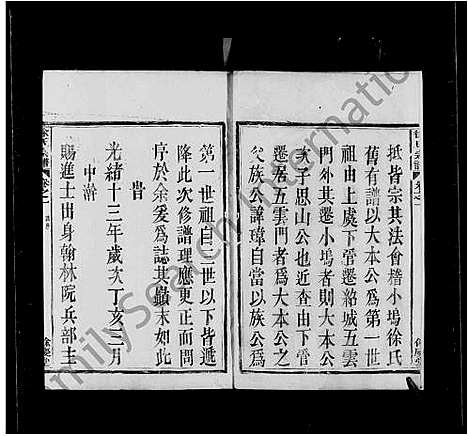 抵皆宗其法會稽小塢徐氏
舊有譜以大本公爲第一世
祖由上處下管遷紹城五雲
門外其遷小塢者則大本公
次子思山公也近查由下管
遷居五雲門者爲大本公之
父族公諱瑋自當以族公爲
第一世祖自二世以下皆遞
降此次修譜理應更正而問
序於余爰爲誌其顚末如此
旹
光緒十三年歲次丁亥三月
中澣
賜進士出身翰林院兵部主